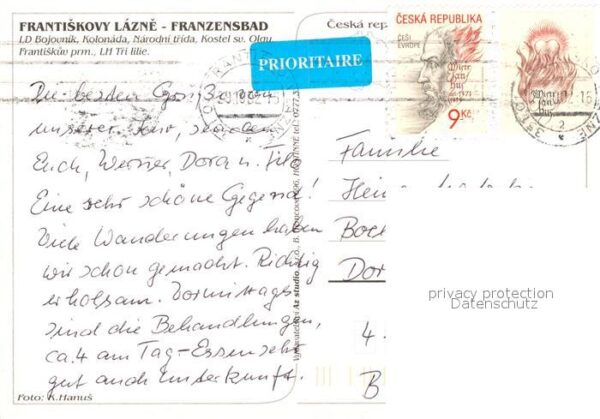 FRANTIŠKOVY LÁZNĚ - FRANZENSBAD
LD Bojovník, Kolonáda, Národní třída, Kostel sv. Olgy
Františkův prm., LH Tři lilie.
Die besten Grüße von
unserer Kur, senden
Euch, Werner, Dora u.
Eine sehr schöne Gegend!
Viele Wanderungen haben
wir schon gemacht. Richtig
erholsam. Vormittags
sind die Behandlungen,
ca. 4 am Tag - Essen sehr
gut auch Unterkunft.
Foto: K.Hanuš
Česká rep
PRIORITAIRE
ČESKÁ REPUBLIKA
ČEŠI
EVROPĚ
Mistr
Jan
Hus
9 Kč
Mistr
Jan
Hus
Az studio
Familie
Hein
Dor
4.
B
privacy protection
Datenschutz